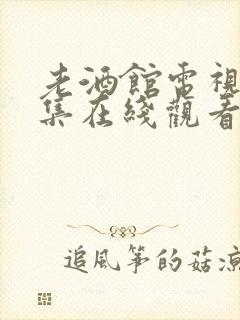 老酒館電視
集在綫觀看
追風筝的菇凉